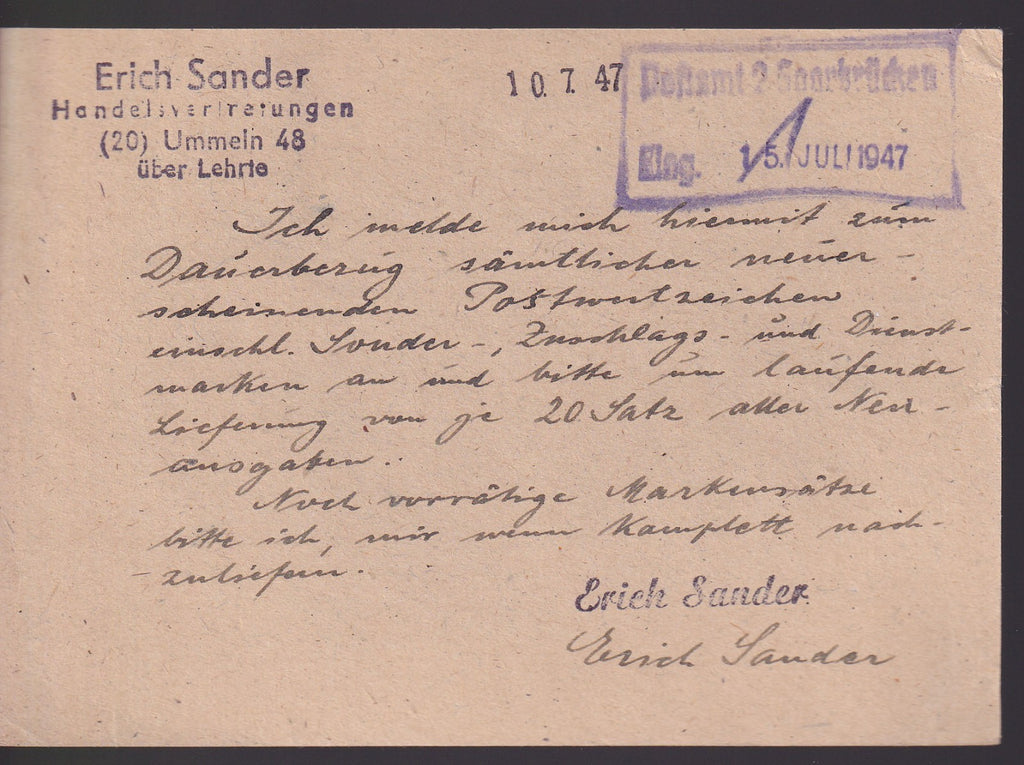 Erich Sander
Handelsvertretungen
(20) Ummeln 48
über Lehrte
10. 7. 47
Postamt 2 Saarbrücken
Eing. 15. JULI 1947
Ich melde mich hiermit zum
Dauerbezug sämtlicher neuer-
scheinenden Postwertzeichen
einschl. Sonder-, Zuschlags- und Dienst-
marken an und bitte um laufende
Lieferung von je 20 Satz aller Neu-
ausgaben.
Noch vorrätige Markensätze
bitte ich, mir wenn komplett nach-
zuliefern.
Erich Sander
Erich Sander